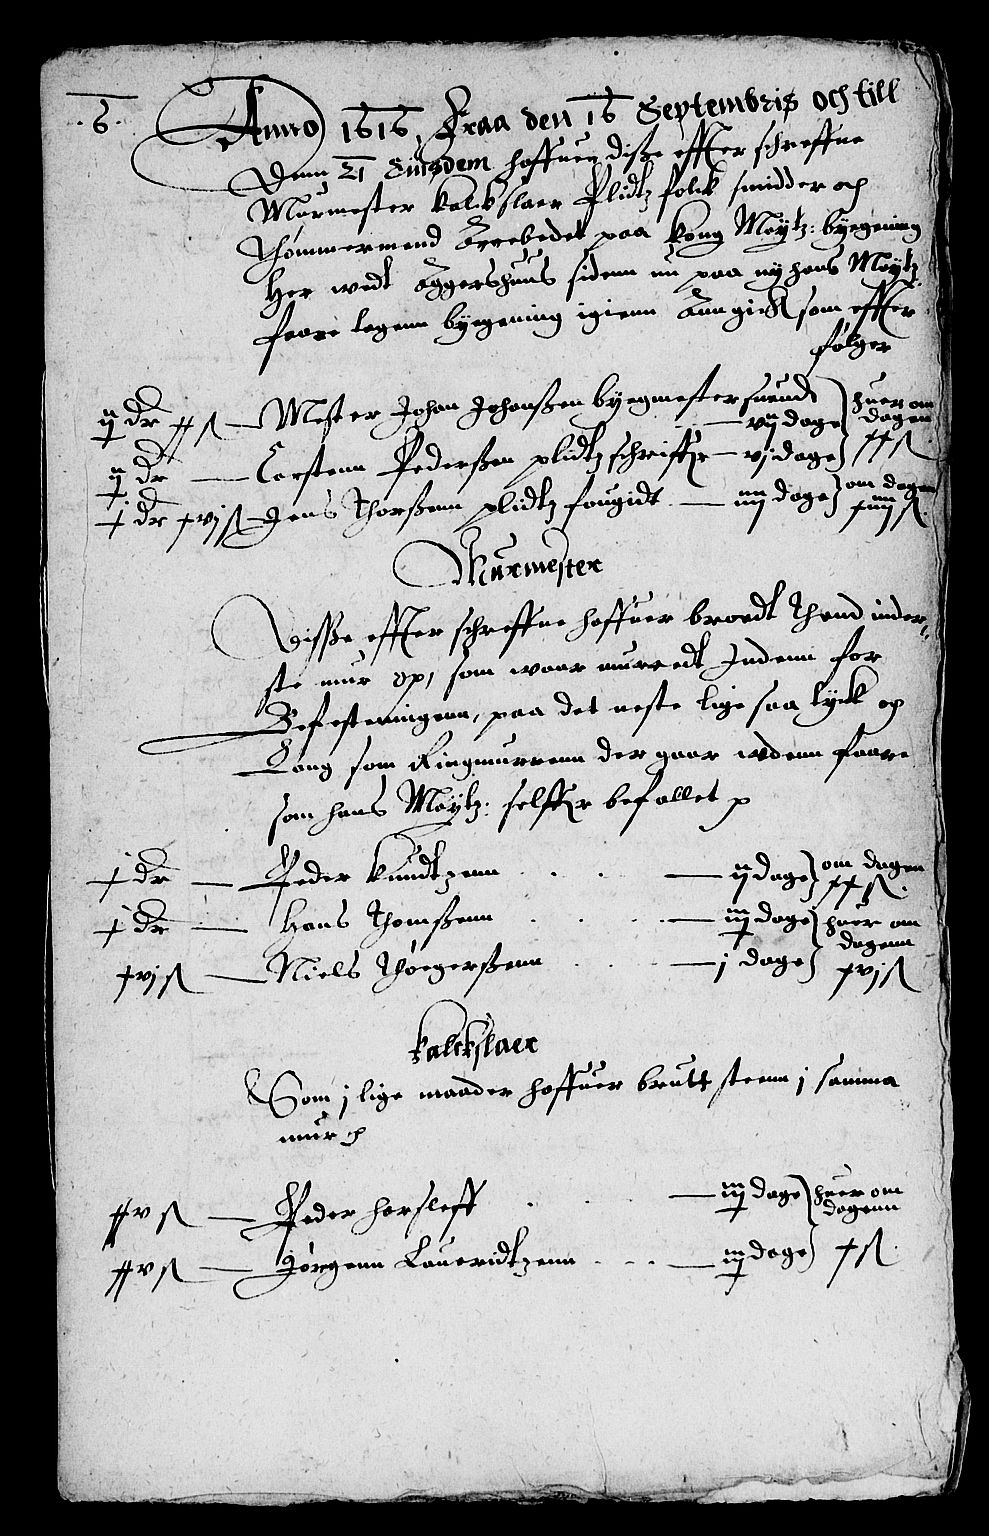 6.
Anno 1616, Fraa den 16 Septembris och till
Denn 21 Eiusdem haffuer diße effter schreffne
Murmester kalckslaer Plidtz folck smidder och
Thømmermend Arrebedet paa Kong Maytz: byegening
Her wedt Aggershuus sidenn nu paa ny hans Maytz
faare lagenn byegening igienn Ann gick som effter
følger
ij dr xx ß — Mester Johan Johanßen byegmester suend — vij dage } huer om dagen xx ß
ij dr — Carstenn Pederßen plidtz schriffr — vj dage }
j dr xvj ß — Jens Thorßenn plidtz fougidt — iiij dage } om dagen xiiij ß
Murmester
Disße effter schreffne haffuer brødt thend inder-
ste mur op, som waar murredt Indenn for
Befesteningenn, paa det neste lige saa tyck och
Lang som Ringmurrenn der gaar wdenn faare
som hans Maytz: selffr befallet
j dr — Peder Knudtzenn — ij dage } om dagen xx ß
j dr — Hans Thomßenn — iij dage } huer om dagenn
xvj ß — Niels Thøgerßenn — j dage } xvj ß
Kalckslaer
Som j lige maader haffuer brutt steenn j samma
mur
xxv ß — Peder Horsleff — iij dage } huer om dagenn
xxv ß — Jørgenn Laueridtzenn — iij dage } x ß